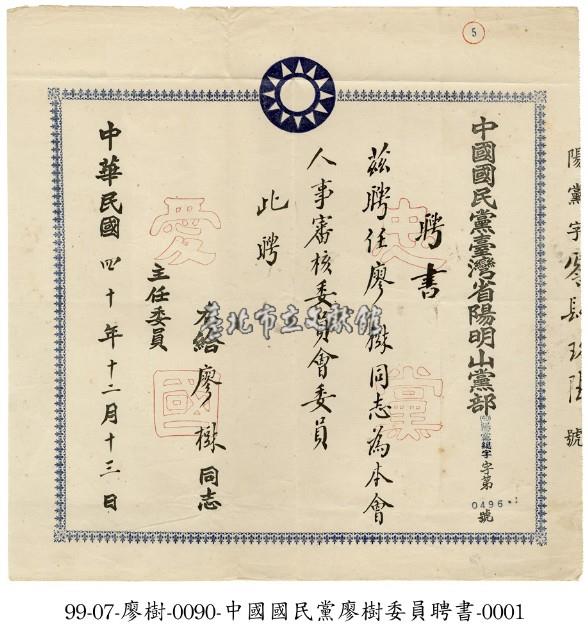 5
陽黨字零肆玖陸號
中國國民黨臺灣省陽明山黨部
字第0496號
聘書
茲聘任廖樹同志為本會
人事審核委員會委員
此聘
右給廖樹同志
主任委員
中華民國四十年十二月十三日
忠
黨
愛
國
臺北市立文獻館
99-07-廖樹-0090-中國國民黨廖樹委員聘書-0001